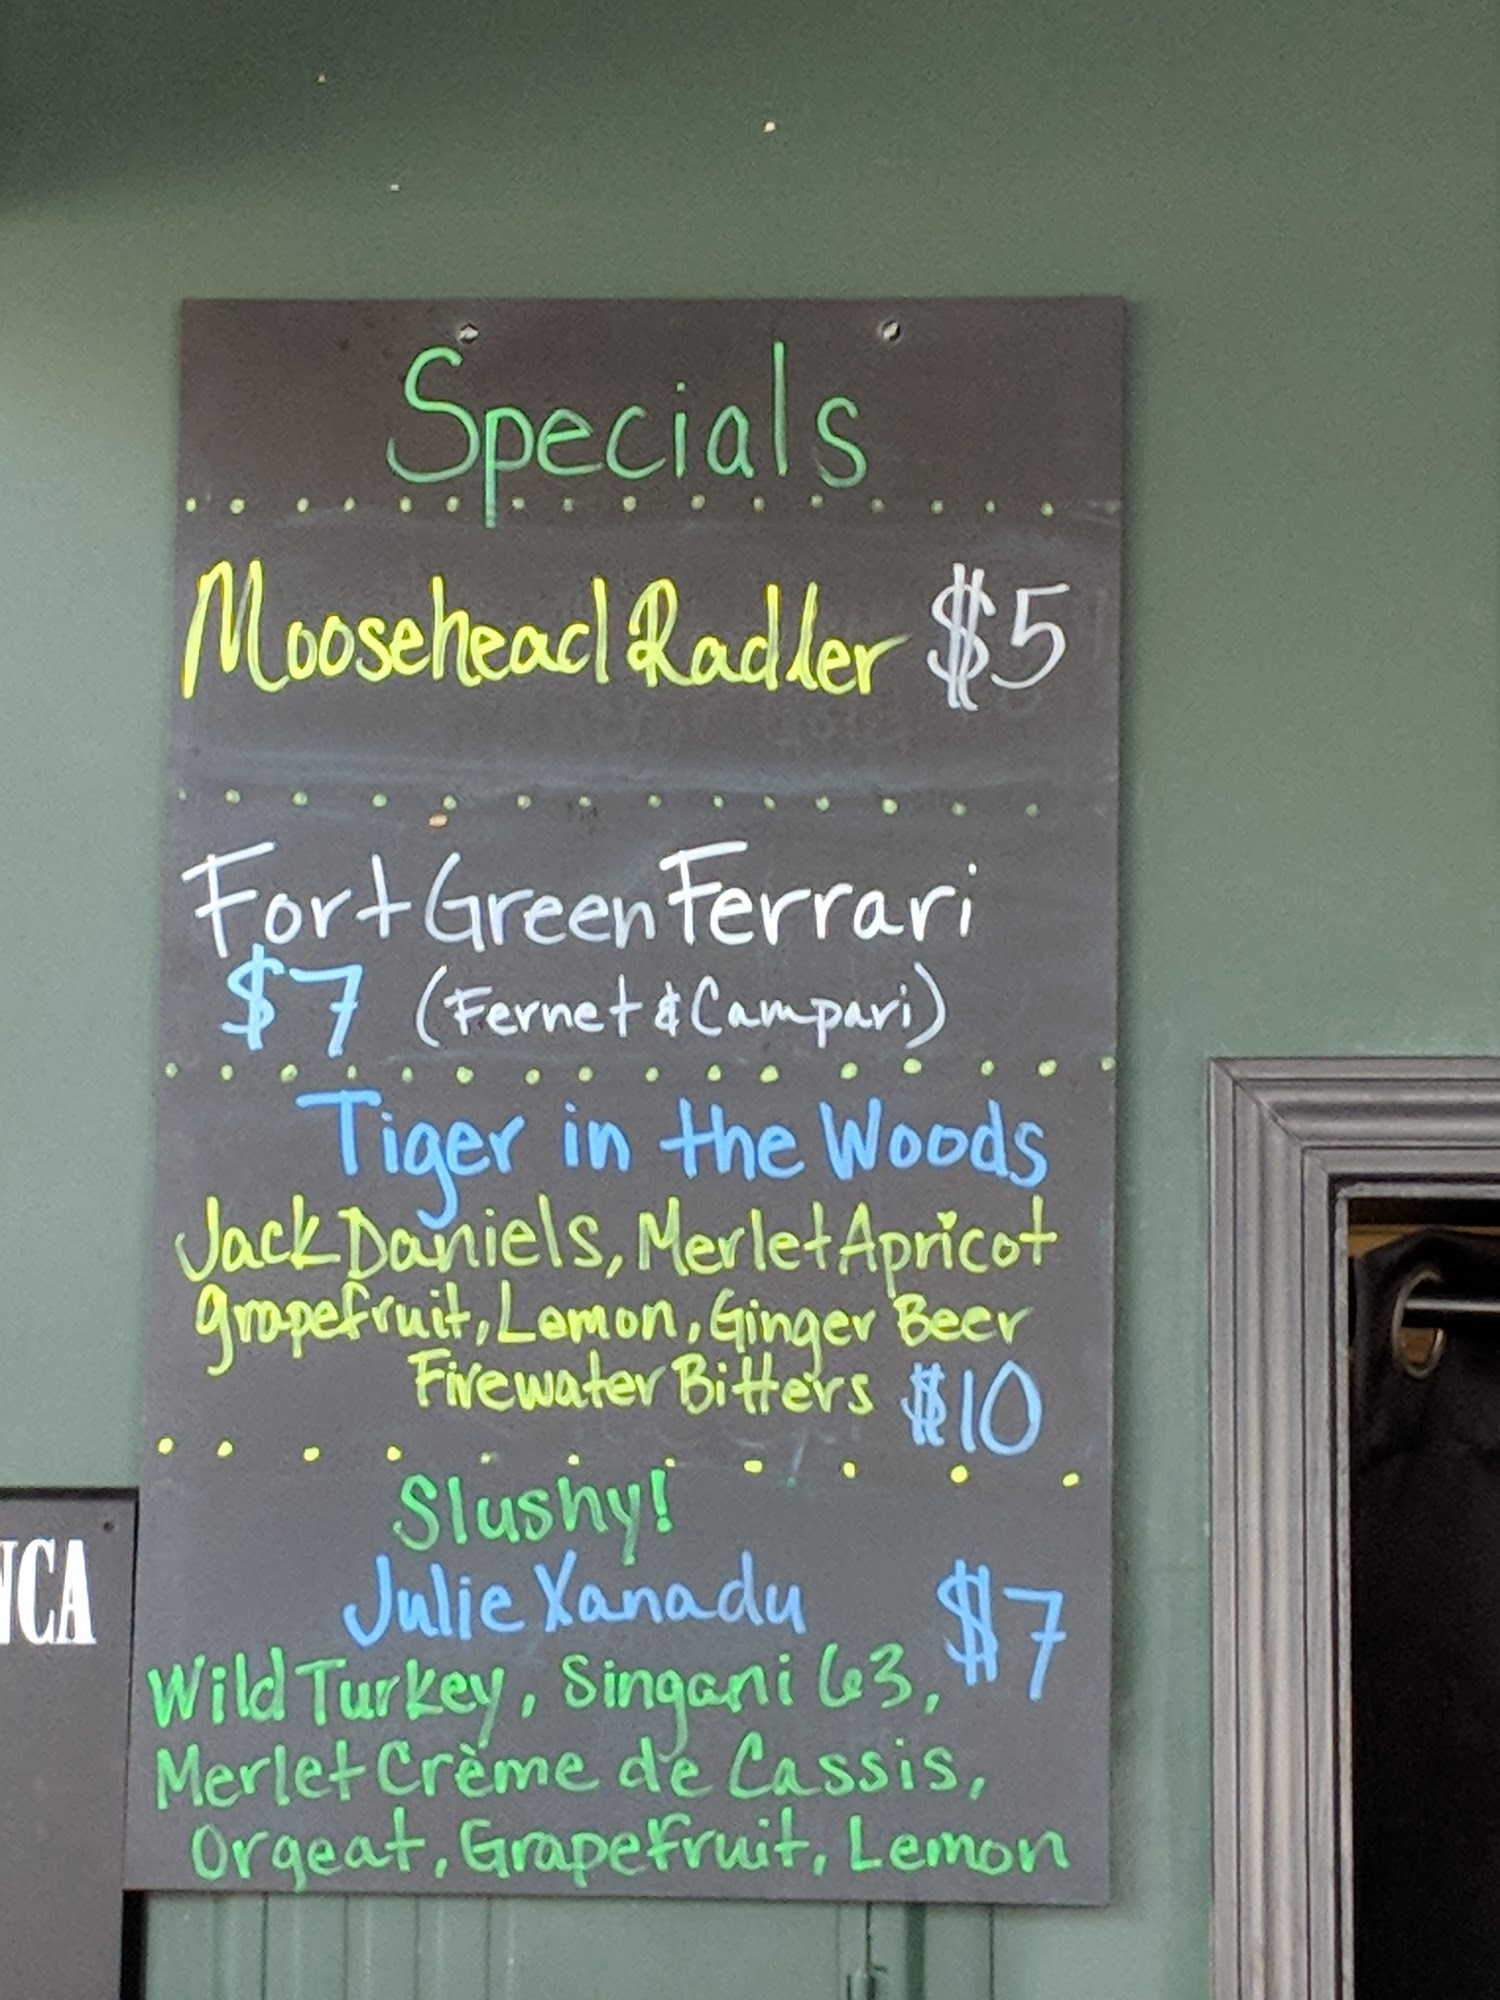 Specials
Moosehead Radler $5
Fort Green Ferrari
$7 (Fernet & Campari)
Tiger in the Woods
Jack Daniels, Merlet Apricot
grapefruit, Lemon, Ginger Beer
Firewater Bitters $10
Slushy!
Julie Xanadu $7
Wild Turkey, Singani 63,
Merlet Crème de Cassis,
Orgeat, Grapefruit, Lemon
NCA